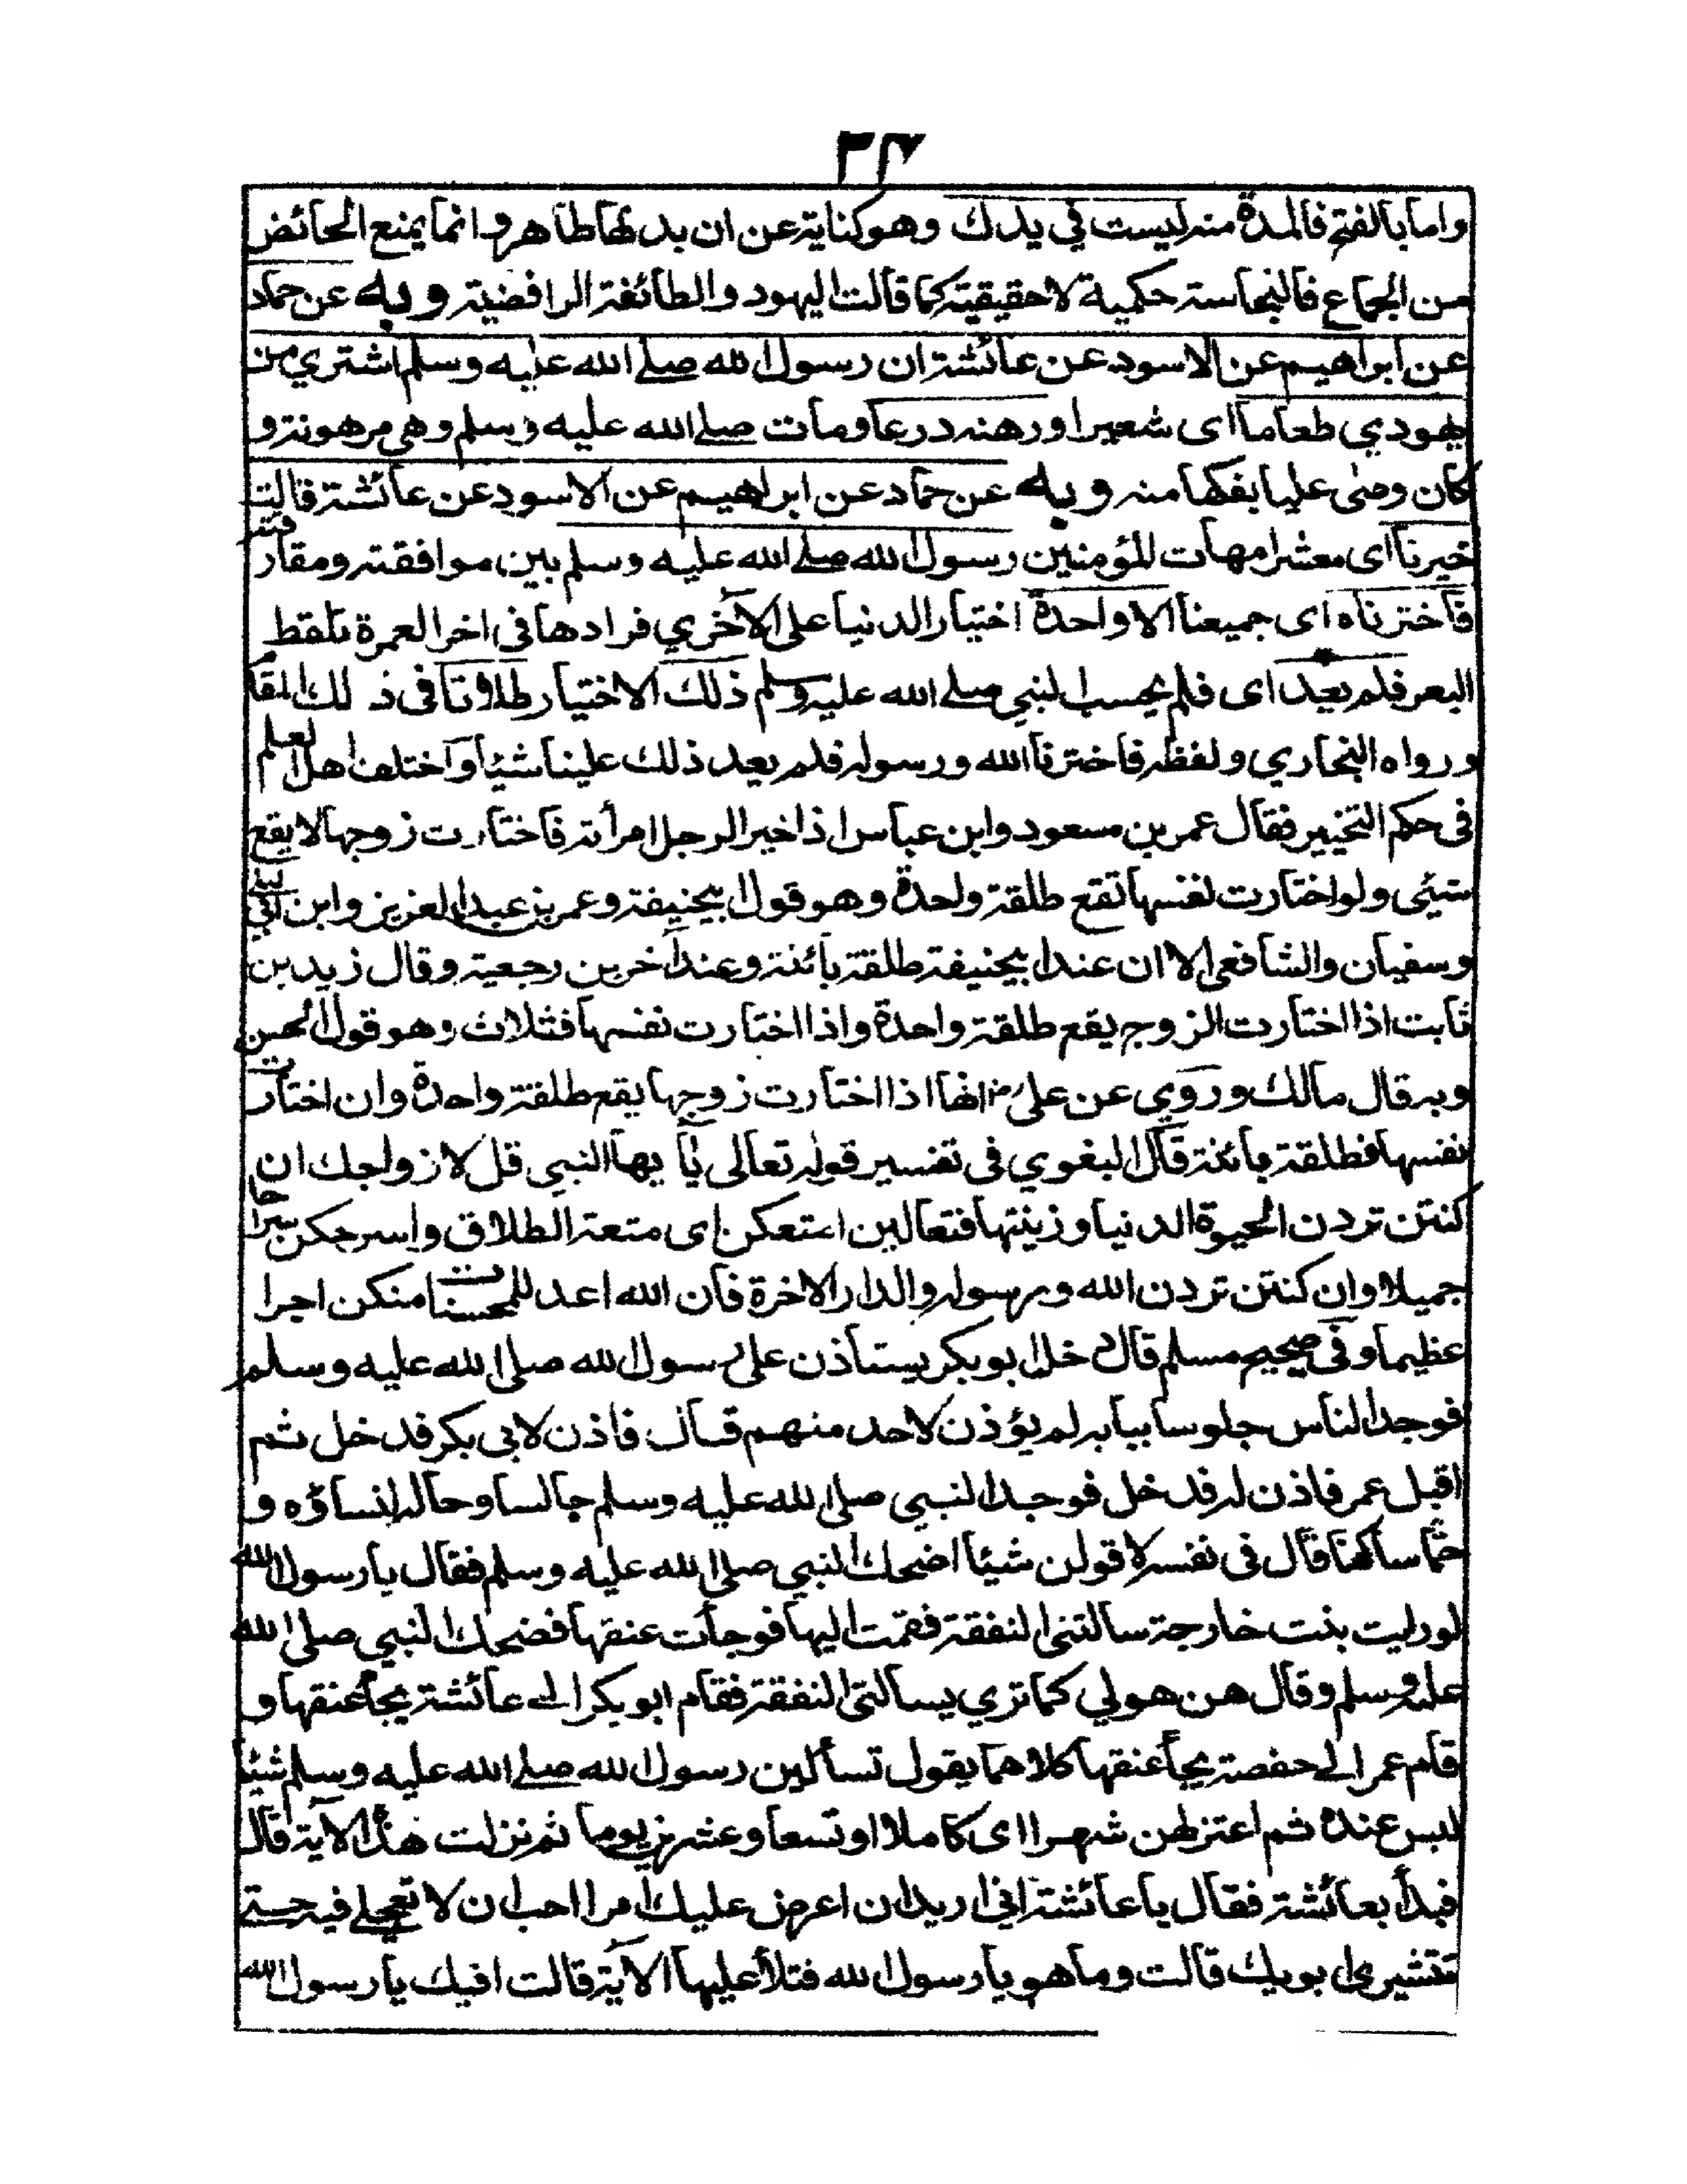 ٣٤
واما بالفتح فالمدة منه ليست في يدك وهو كناية عن ان بدنها طاهر وانما يمنع الحائض
من الجماع فالنجاسة حكمية لا حقيقية كما قالت اليهود والطائفة الرافضية وبه عن حماد
عن ابراهيم عن الاسود عن عائشة ان رسول الله صلے الله عليه وسلم اشتري من
يهودي طعاما اى شعيرا ورهنه درعا ومات صلے الله عليه وسلم وهي مرهونة و
كان وصى عليا بفكها منه وبه عن حماد عن ابراهيم عن الاسود عن عائشة قالت
خيرنا اى معشر امهات المؤمنين رسول الله صلے الله عليه وسلم بين موافقته ومفارقته
فاخترناه اى جميعنا الا واحدة اختيار الدنيا على الاخري فرادها في اخر العمرة تلقط
البعر فلم يعد اى فلم يحسب النبي صلے الله عليه وسلم ذلك الاختيار طلاقا في ذلك المقا
ورواه البخاري ولفظه فاخترنا الله ورسوله فلم يعد ذلك علينا شيئا واختلف اهل العلم
في حكم التخيير فقال عمر بن مسعود وابن عباس اذا خير الرجل امرأته فاختارت زوجها لا يقع
شيئى ولو اختارت نفسها تقع طلقة واحدة وهو قول ابيحنيفة وعمر بن عبد العزيز وابن ابي ليلى
وسفيان والشافعى الا ان عند ابيحنيفة طلقة بائنة وعند اخرين رجعية وقال زيد بن
ثابت اذا اختارت الزوج يقع طلقة واحدة واذا اختارت نفسها فثلاث وهو قول الحسن
وبه قال مالك وروي عن علىؓ انها اذا اختارت زوجها يقع طلقة واحدة وان اختارت
نفسها فطلقة بائنة قال البغوي في تفسير قوله تعالى يا يها النبي قل لازواجك ان
كنتن تردن الحيوة الدنيا وزينتها فتعالين امتعكن اى متعة الطلاق واسرحكن سراحا
جميلا وان كنتن تردن الله ورسوله والدار الاخرة فان الله اعد للمحسنات منكن اجرا
عظيما وفي صحيح مسلم قال دخل ابو بكر يستاذن على رسول الله صلى الله عليه وسلم
فوجد الناس جلوسا ببابه لم يؤذن لاحد منهم قال فاذن لابي بكر فدخل ثم
اقبل عمر فاذن له فدخل فوجد النبي صلى الله عليه وسلم جالسا وحاله نساؤه و
حما ساكتا قال في نفسه لاقولن شيئا اضحك النبي صلى الله عليه وسلم فقال يا رسول الله
لو رايت بنت خارجة سالتني النفقة فقمت اليها فوجأت عنقها فضحك النبي صلى الله
عليه وسلم وقال هن حولي كما تري يسالتى النفقة فقام ابو بكر الے عائشة يجأ عنقها و
قام عمر الے حفصة يجأ عنقها كلاهما يقول تسألين رسول الله صلے الله عليه وسلم شيئا
ليس عنده ثم اعتزلهن شهرا اى كاملا او تسعا وعشرين يوما ثم نزلت هذه الاية قال
فبدأ بعائشة فقال يا عائشة اني اريد ان اعرض عليك امرا احب ان لا تعجلے فيه حتے
تتشيرى ابويك قالت وما هو يا رسول الله فتلأ عليها الاية قالت افيك يا رسول الله